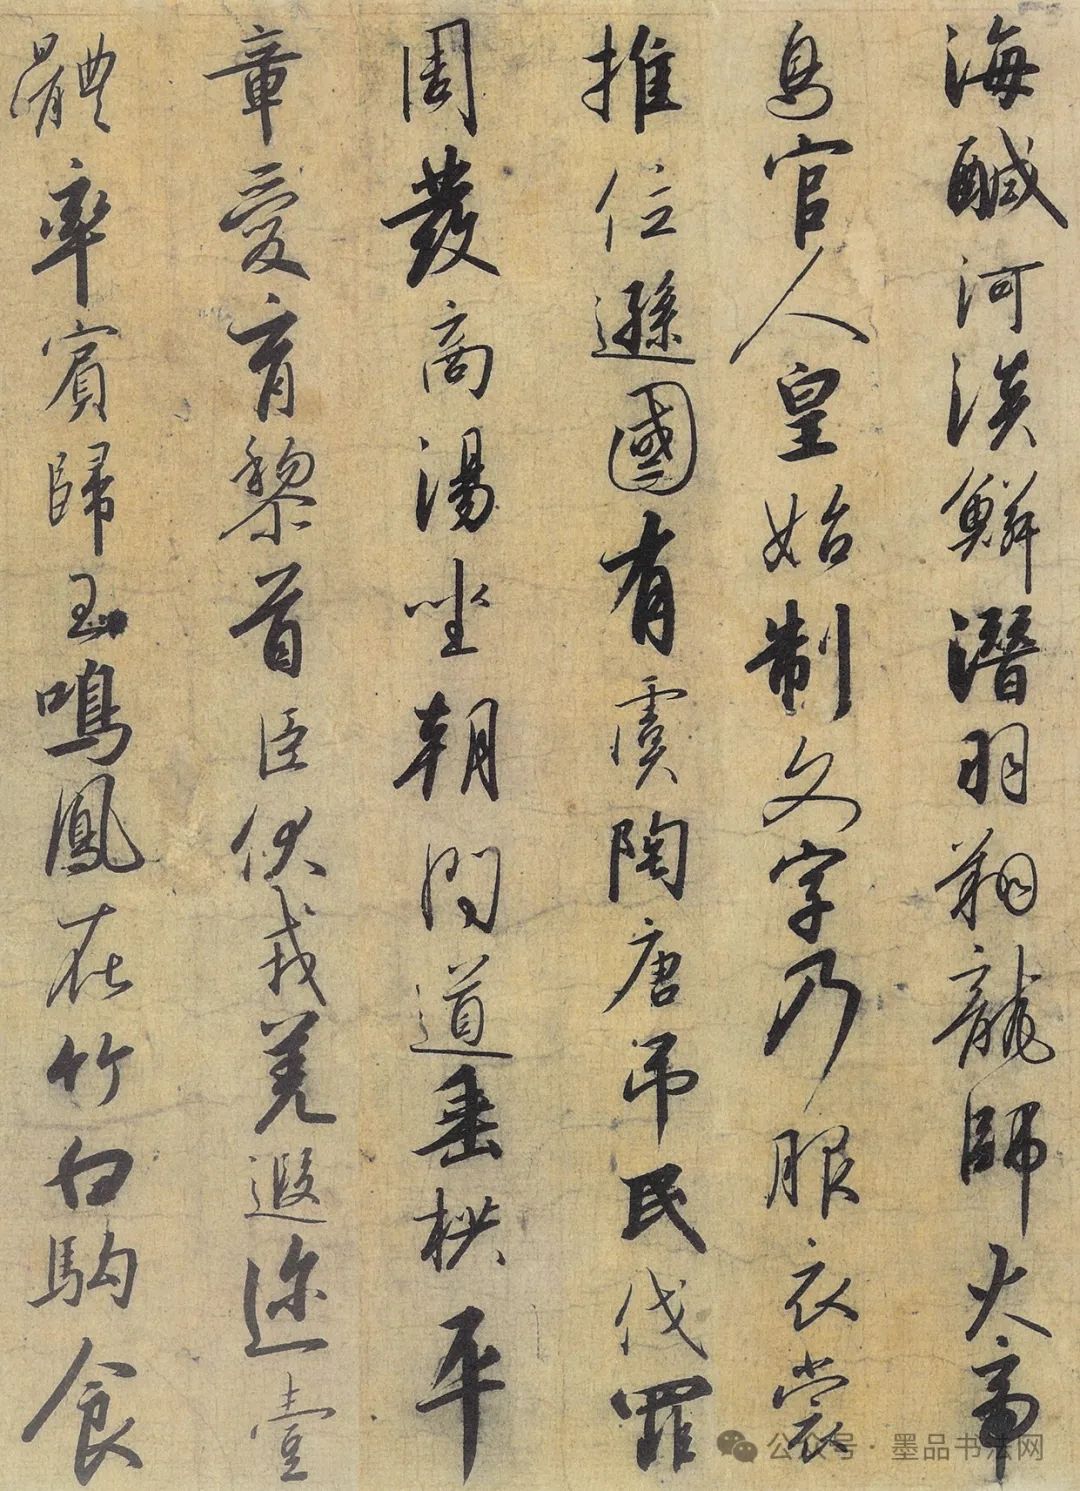 海醎河淡鱗潛羽翔龍師火帝
鳥官人皇始制文字乃服衣裳
推位遜國有虞陶唐弔民伐罪
周發商湯坐朝問道垂拱平
章愛育黎首臣伏戎羌遐迩壹
體率賓歸王鳴鳳在竹白駒食
公众号·墨品书法网